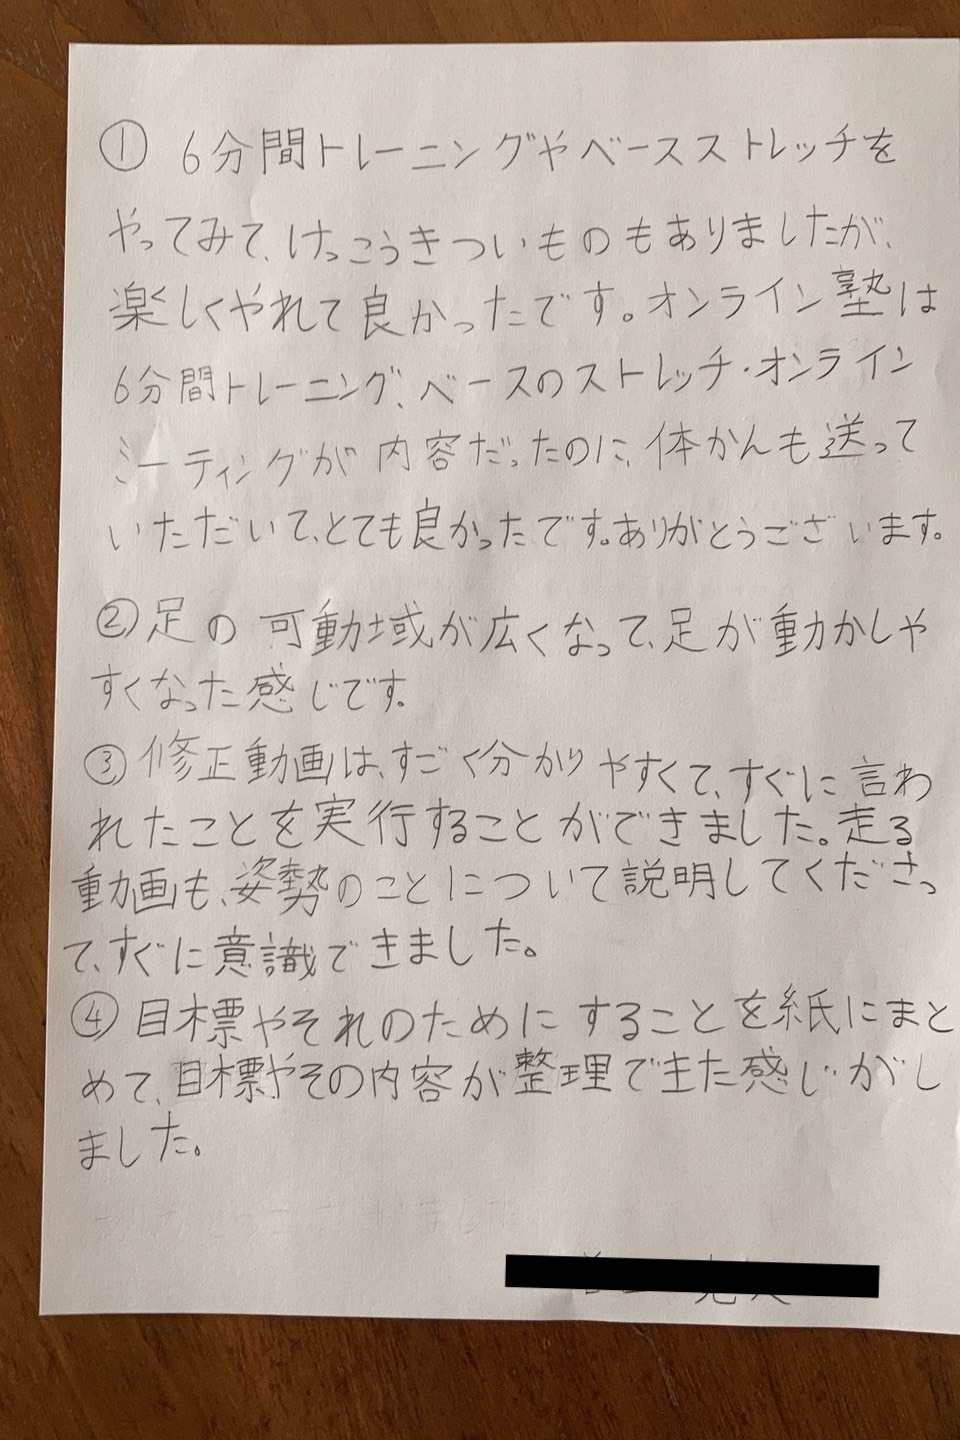 ① 6分間トレーニングやベースストレッチを
やってみて、けっこうきついものもありましたが、
楽しくやれて良かったです。オンライン塾は
6分間トレーニング、ベースのストレッチ・オンライン
ミーティングが内容だったのに、体かんも送って
いただいて、とても良かったです。ありがとうございます。
②足の可動域が広くなって、足が動かしや
すくなった感じです。
③修正動画は、すごく分かりやすくて、すぐに言わ
れたことを実行することができました。走る
動画も、姿勢のことについて説明してくださっ
て、すぐに意識できました。
④目標やそれのためにすることを紙にまと
めて、目標やその内容が整理できた感じがし
ました。